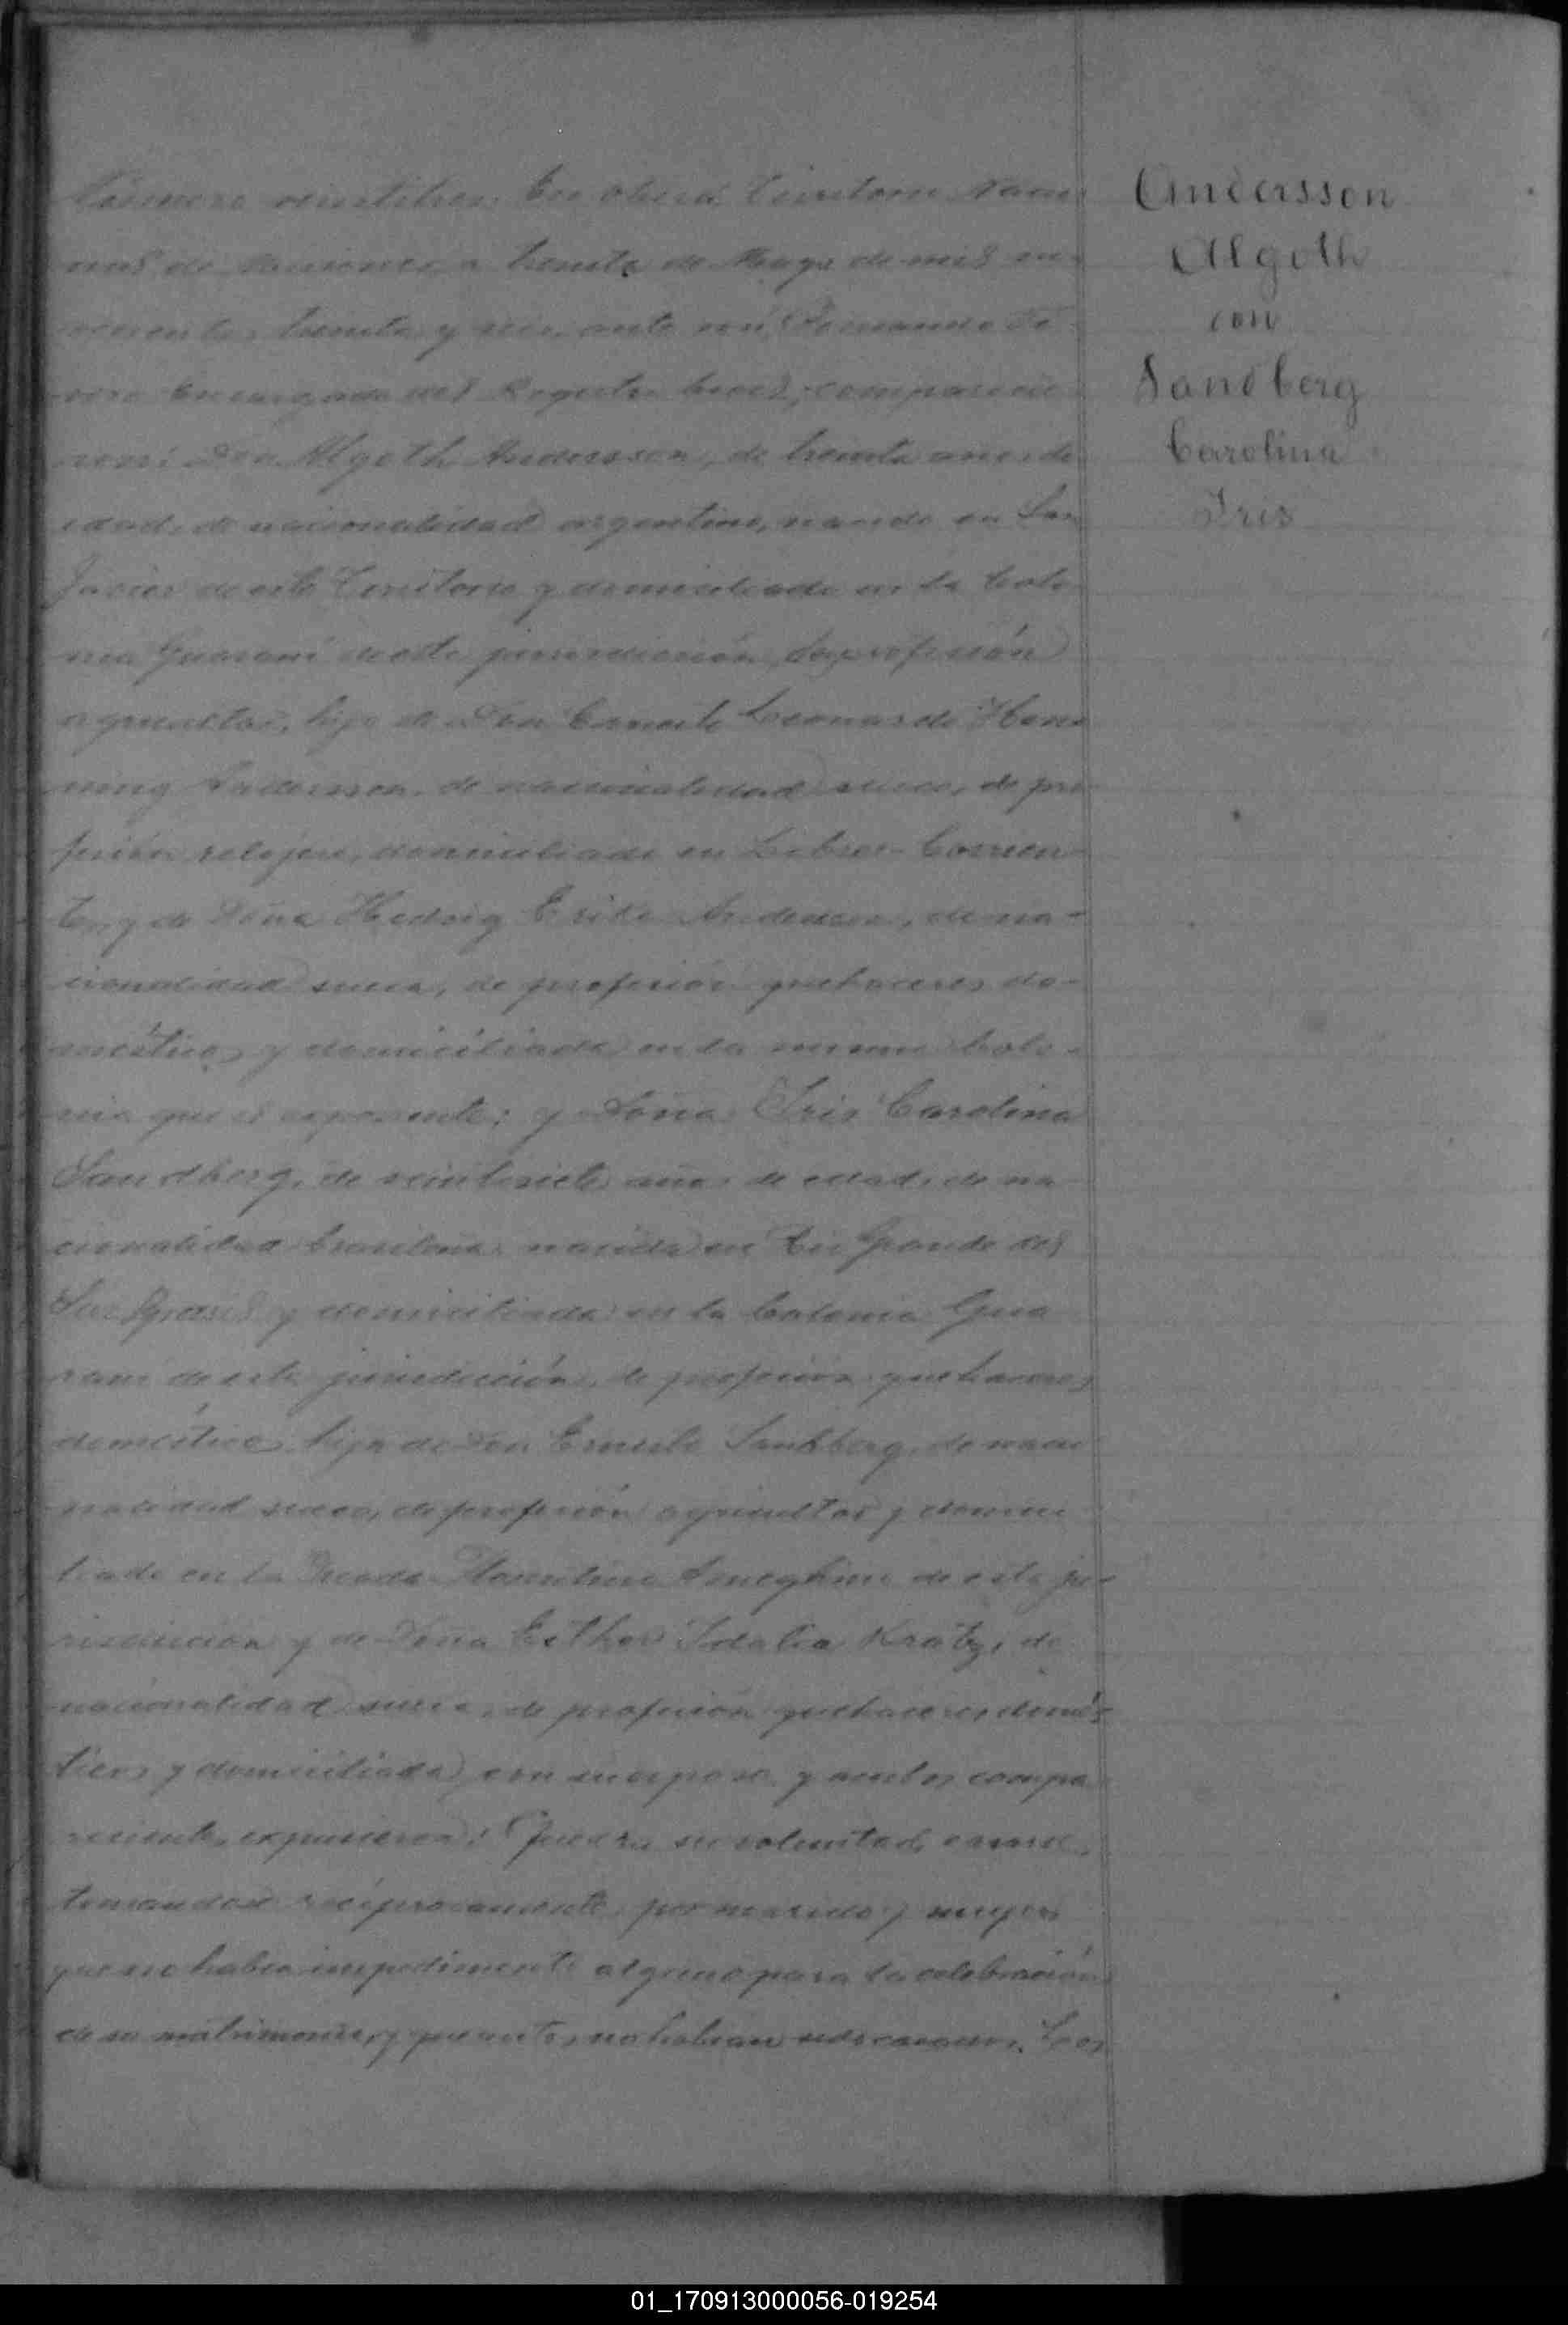 Número veintitres. En Oberá Territorio Nacio
nal de Misiones, a treinta de Mayo de mil no
vecientos treinta y seis, ante mí, Fernando
Encargado del Registro Civil, comparecie
ron: Don Algoth Andersson, de treinta años de
edad, de nacionalidad argentino, nacido en San
Javier de este Territorio y domiciliado en la Colo
nia Guaraní de esta jurisdicción, de profesión
agricultor, hijo de Don Ernesto Leonardo Hen
ning Andersson, de nacionalidad sueco, de pro
fesión relojero, domiciliado en Libres-Corrien
tes, y de Doña Hedvig Andersson, de na-
cionalidad sueca, de profesión quehaceres do-
mésticos y domiciliada en la misma Colo-
nia que el exponente; y Doña Iris Carolina
Sandberg, de veintisiete años de edad, de na
cionalidad brasileña nacida en Rio Grande del
Sur, Brasil y domiciliada en la Colonia Gua
raní de esta jurisdicción, de profesión quehaceres
domésticos, hija de Don Ernesto Sandberg, de nacio
nalidad sueco, de profesión agricultor y domici
liado en la Picada Florentino Ameghino de esta ju-
risdicción y de Doña Esther Idalia Kratz, de
nacionalidad sueca, de profesión quehaceres domés
ticos y domiciliada con su esposo y ambos compa
recientes expusieron: Que era su voluntad casarse,
tomandose recíprocamente por marido y mujer,
que no habia impedimento alguno para la celebración
de su matrimonio, y que antes no habian sido casados. Los
Andersson
Algoth
con
Sandberg
Carolina
Iris
01_170913000056-019254